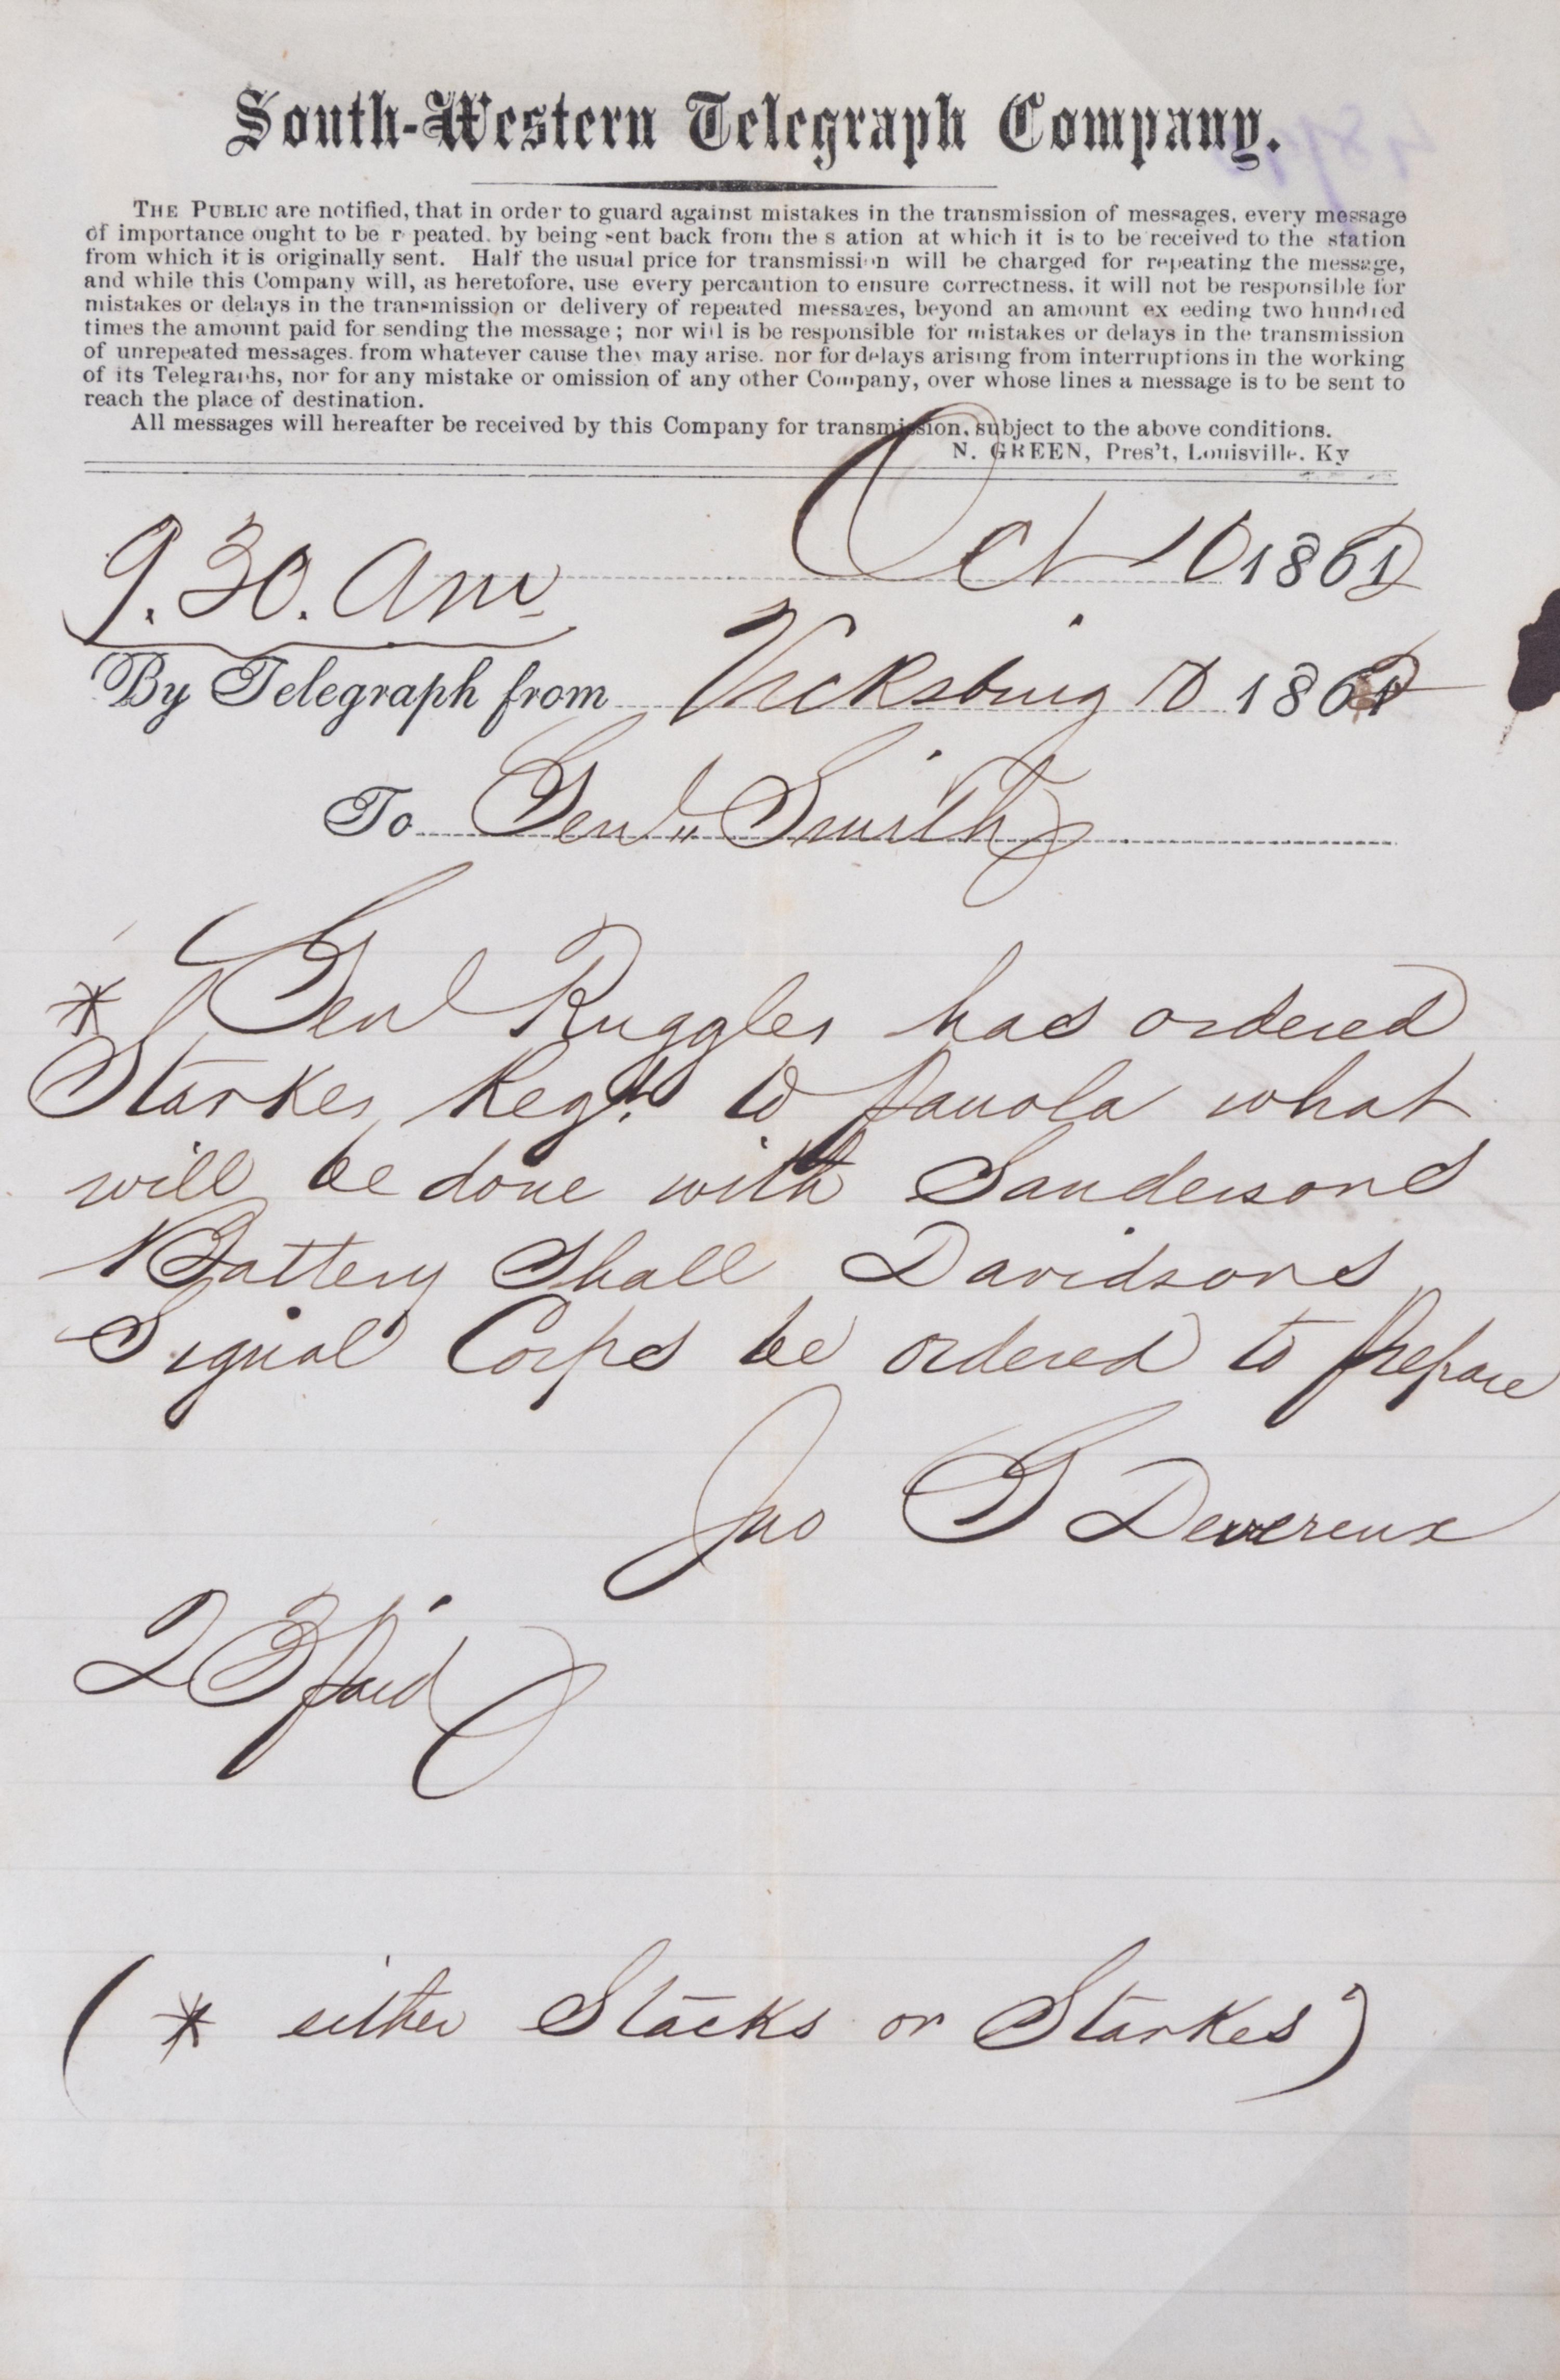 South-Western Telegraph Company.
THE PUBLIC are notified, that in order to guard against mistakes in the transmission of messages, every message
of importance ought to be r peated. by being sent back from the s ation at which it is to be received to the station
from which it is originally sent. Half the usual price for transmission will be charged for repeating the message,
and while this Company will, as heretofore, use every percaution to ensure correctness, it will not be responsible for
mistakes or delays in the transmission or delivery of repeated messages, beyond an amount ex eeding two hundred
times the amount paid for sending the message; nor will is be responsible for mistakes or delays in the transmission
of unrepeated messages. from whatever cause they may arise. nor for delays arising from interruptions in the working
of its Telegraphs, nor for any mistake or omission of any other Company, over whose lines a message is to be sent to
reach the place of destination.
All messages will hereafter be received by this Company for transmission, subject to the above conditions.
N. GREEN, Pres't, Louisville. Ky
Oct 10 1862
9.30. Am
By Telegraph from Vicksburg 10 1862
To Genl Smith
* Genl Ruggles has ordered
Starkes Regt. to Panola what
will be done with Sandersons
Battery Shall Davidsons
Signal Corps be ordered to prepare
Jno G Devereux
23 paid
(* either Stacks or Starkes)